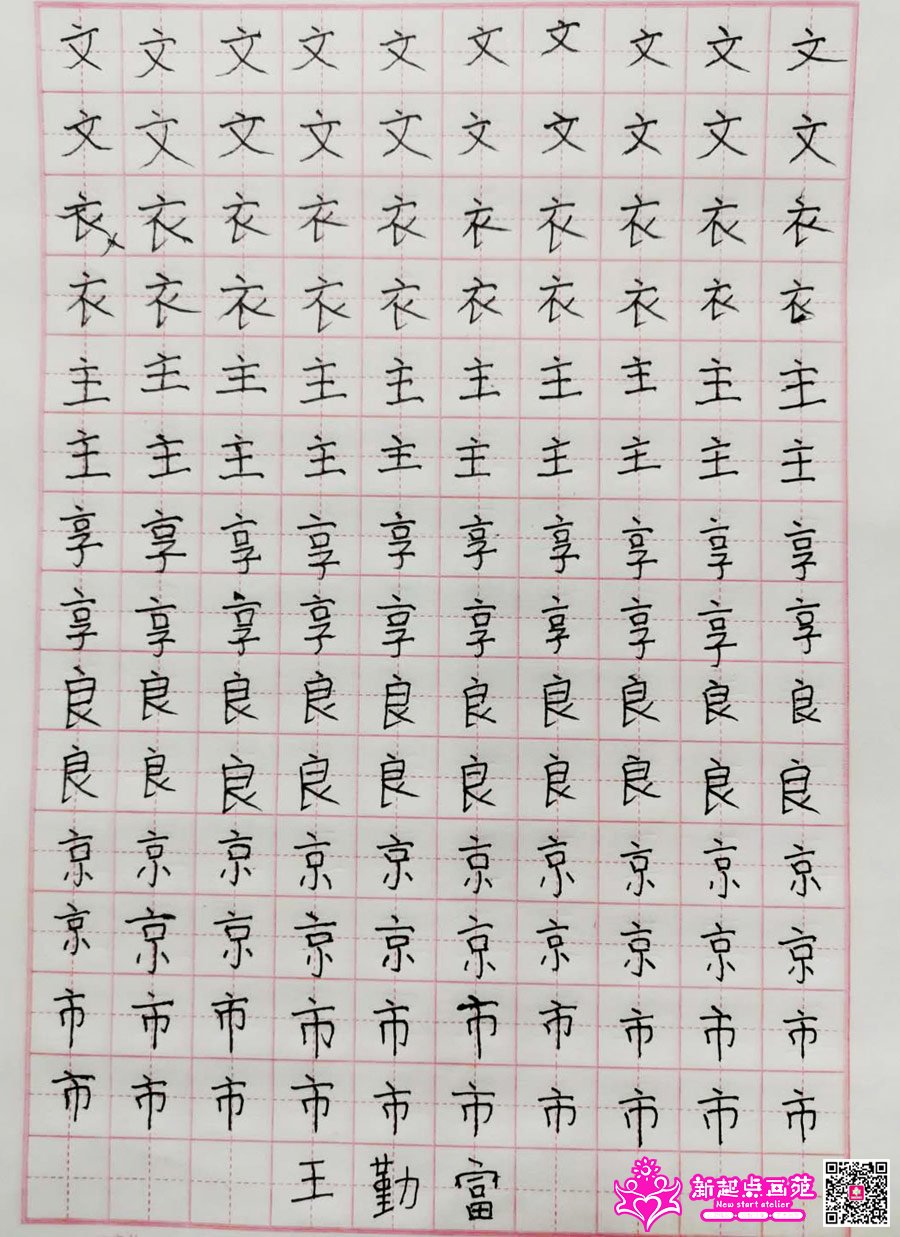 文文文文文文文文文文
文文文文文文文文文文
衣衣衣衣衣衣衣衣衣衣
衣衣衣衣衣衣衣衣衣衣
主主主主主主主主主主
主主主主主主主主主主
享享享享享享享享享享
享享享享享享享享享享
良良良良良良良良良良
良良良良良良良良良良
京京京京京京京京京京
京京京京京京京京京京
市市市市市市市市市市
市市市市市市市市市市
王勤富
新起点画苑
New start atelier